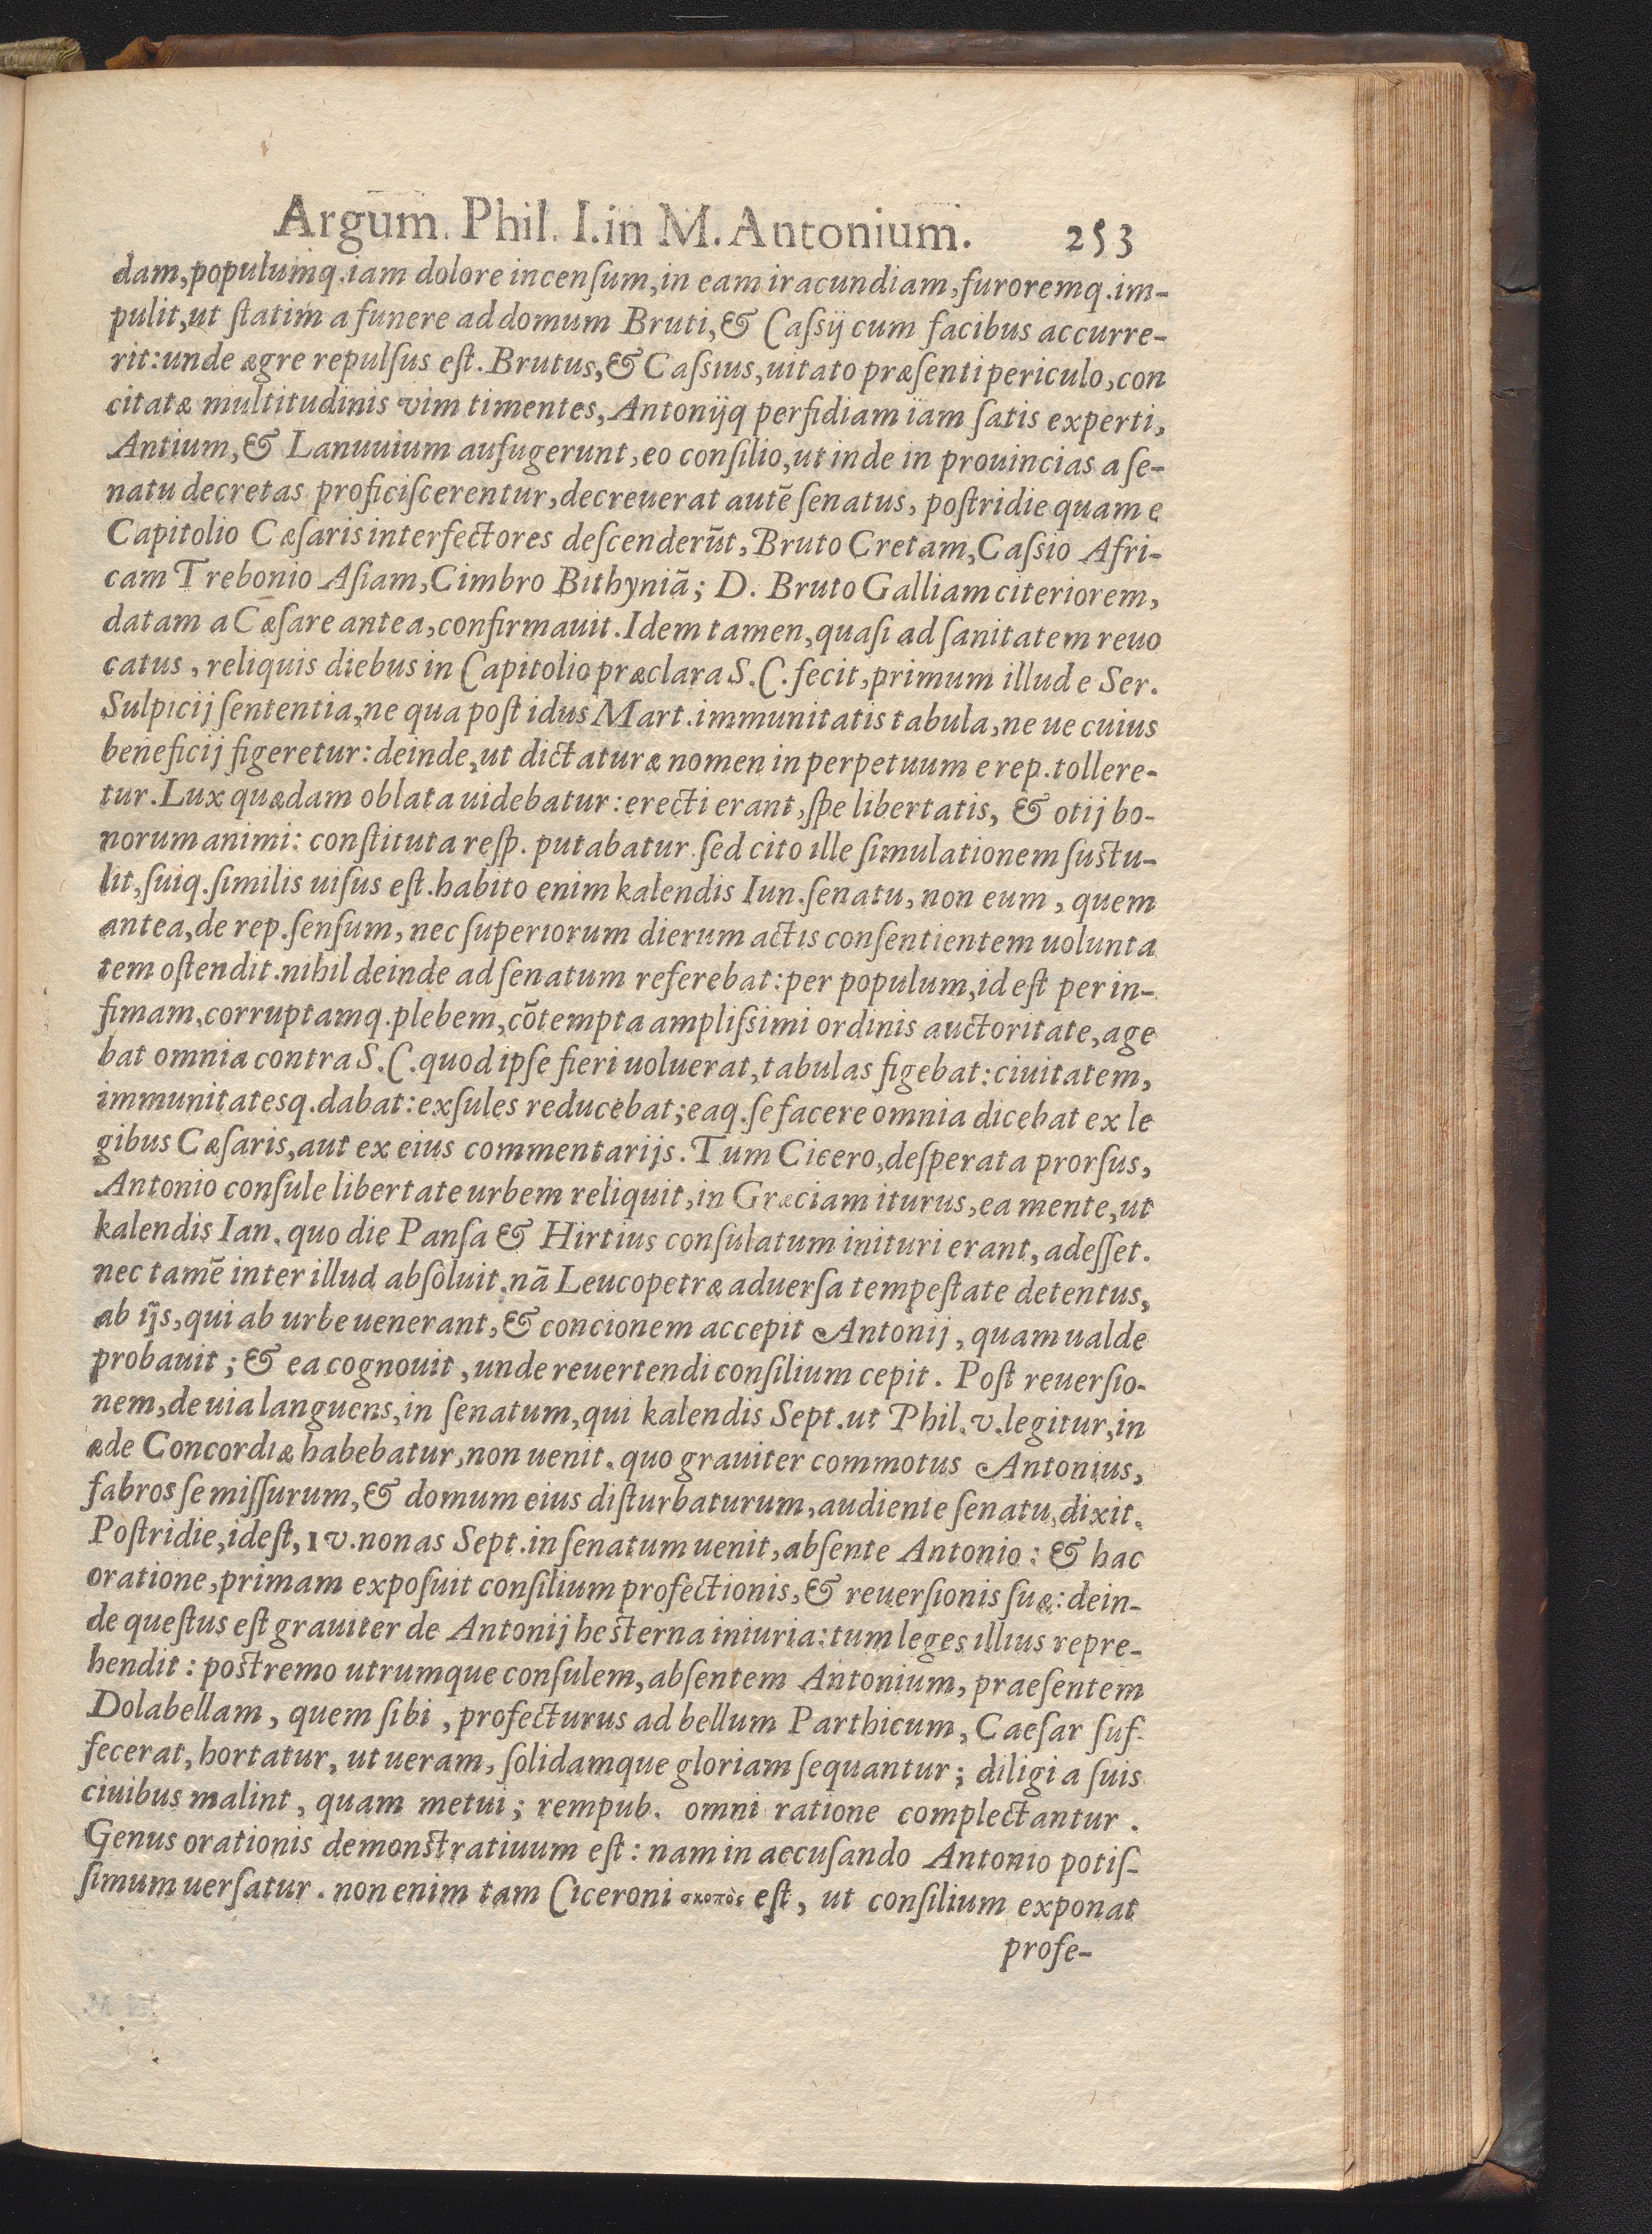 Argum. Phil. I. in M. Antonium. 253
dam, populumq. iam dolore incensum, in eam iracundiam, furoremq. im-
pulit, ut statim a funere ad domum Bruti, & Cassij cum facibus accurre-
rit: unde ægre repulsus est. Brutus, & Cassius, uitato præsenti periculo, con
citatæ multitudinis vim timentes, Antonijq perfidiam iam satis experti,
Antium, & Lanuuium aufugerunt, eo consilio, ut inde in prouincias a se-
natu decretas proficiscerentur, decreuerat autẽ senatus, postridie quam e
Capitolio Cæsaris interfectores descenderũt, Bruto Cretam, Cassio Afri-
cam Trebonio Asiam, Cimbro Bithyniã; D. Bruto Galliam citeriorem,
datam a Cæsare antea, confirmauit. Idem tamen, quasi ad sanitatem reuo
catus, reliquis diebus in Capitolio præclara S. C. fecit, primum illud e Ser.
Sulpicij sententia, ne qua post idus Mart. immunitatis tabula, ne ue cuius
beneficij figeretur: deinde, ut dictaturæ nomen in perpetuum e rep. tollere-
tur. Lux quædam oblata uidebatur: erecti erant, spe libertatis, & otij bo-
norum animi: constituta resp. putabatur. sed cito ille simulationem sustu-
lit, suiq. similis uisus est. habito enim kalendis Iun. senatu, non eum, quem
antea, de rep. sensum, nec superiorum dierum actis consentientem uolunta
tem ostendit. nihil deinde ad senatum referebat: per populum, id est per in-
fimam, corruptamq. plebem, cõtempta amplissimi ordinis auctoritate, age
bat omnia contra S. C. quod ipse fieri uoluerat, tabulas figebat: ciuitatem,
immunitatesq. dabat: exsules reducebat; eaq. se facere omnia dicebat ex le
gibus Cæsaris, aut ex eius commentarijs. Tum Cicero, desperata prorsus,
Antonio consule libertate urbem reliquit, in Græciam iturus, ea mente, ut
kalendis Ian. quo die Pansa & Hirtius consulatum inituri erant, adesset.
nec tamẽ inter illud absoluit. nã Leucopetræ aduersa tempestate detentus,
ab ijs, qui ab urbe uenerant, & concionem accepit Antonij, quam ualde
probauit; & ea cognouit, unde reuertendi consilium cepit. Post reuersio-
nem, de uia languens, in senatum, qui kalendis Sept. ut Phil. v. legitur, in
æde Concordiæ habebatur, non uenit. quo grauiter commotus Antonius,
fabros se missurum, & domum eius disturbaturum, audiente senatu, dixit.
Postridie, idest, IV. nonas Sept. in senatum uenit, absente Antonio: & hac
oratione, primam exposuit consilium profectionis, & reuersionis suæ: dein-
de questus est grauiter de Antonij hesterna iniuria: tum leges illius repre-
hendit: postremo utrumque consulem, absentem Antonium, praesentem
Dolabellam, quem sibi, profecturus ad bellum Parthicum, Caesar suf-
fecerat, hortatur, ut ueram, solidamque gloriam sequantur; diligi a suis
ciuibus malint, quam metui; rempub. omni ratione complectantur.
Genus orationis demonstratiuum est: nam in accusando Antonio potis-
simum uersatur. non enim tam Ciceroni σκοπὸς est, ut consilium exponat
profe-